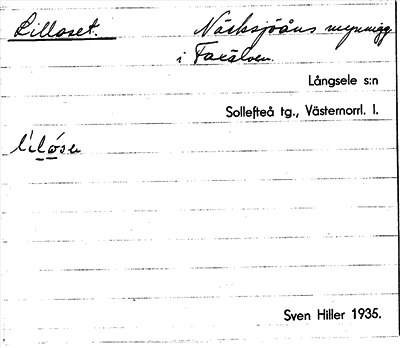 Lilloset. Näcksjöåns mynning
i Faxälven.
Långsele s:n
Sollefteå tg., Västernorrl. l.
Sven Hiller 1935.